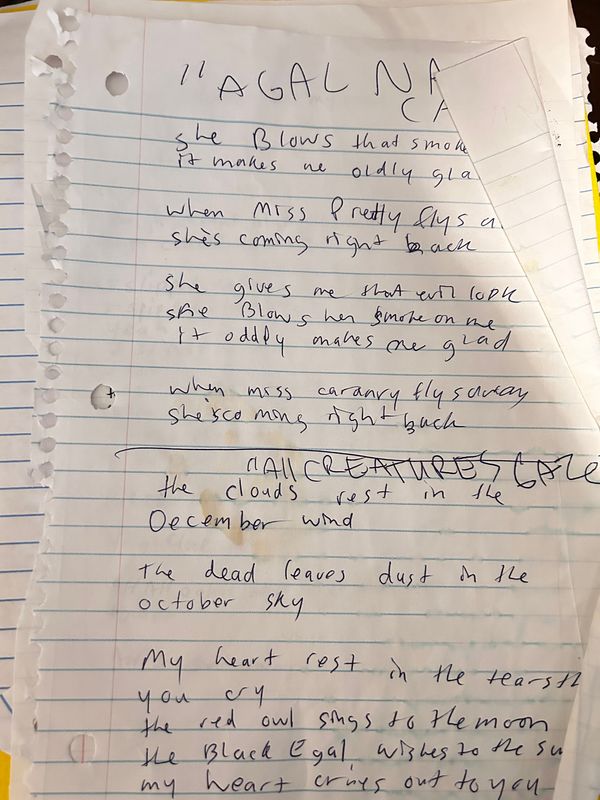 "AGAL NA
CA
she Blows that smoke
it makes me oldly gla
when Miss Pretty flys a
she's coming right back
she gives me that evil look
she Blows her smoke on me
it oddly makes me glad
when miss cananry flys away
she's coming right back
"All CREATURES GAZE
the clouds rest in the
December wind
The dead leaves dust in the
october sky
My heart rest in the tears th
you cry
the red owl sings to the moon
the Black Egal wishes to the su
my heart cries out to you